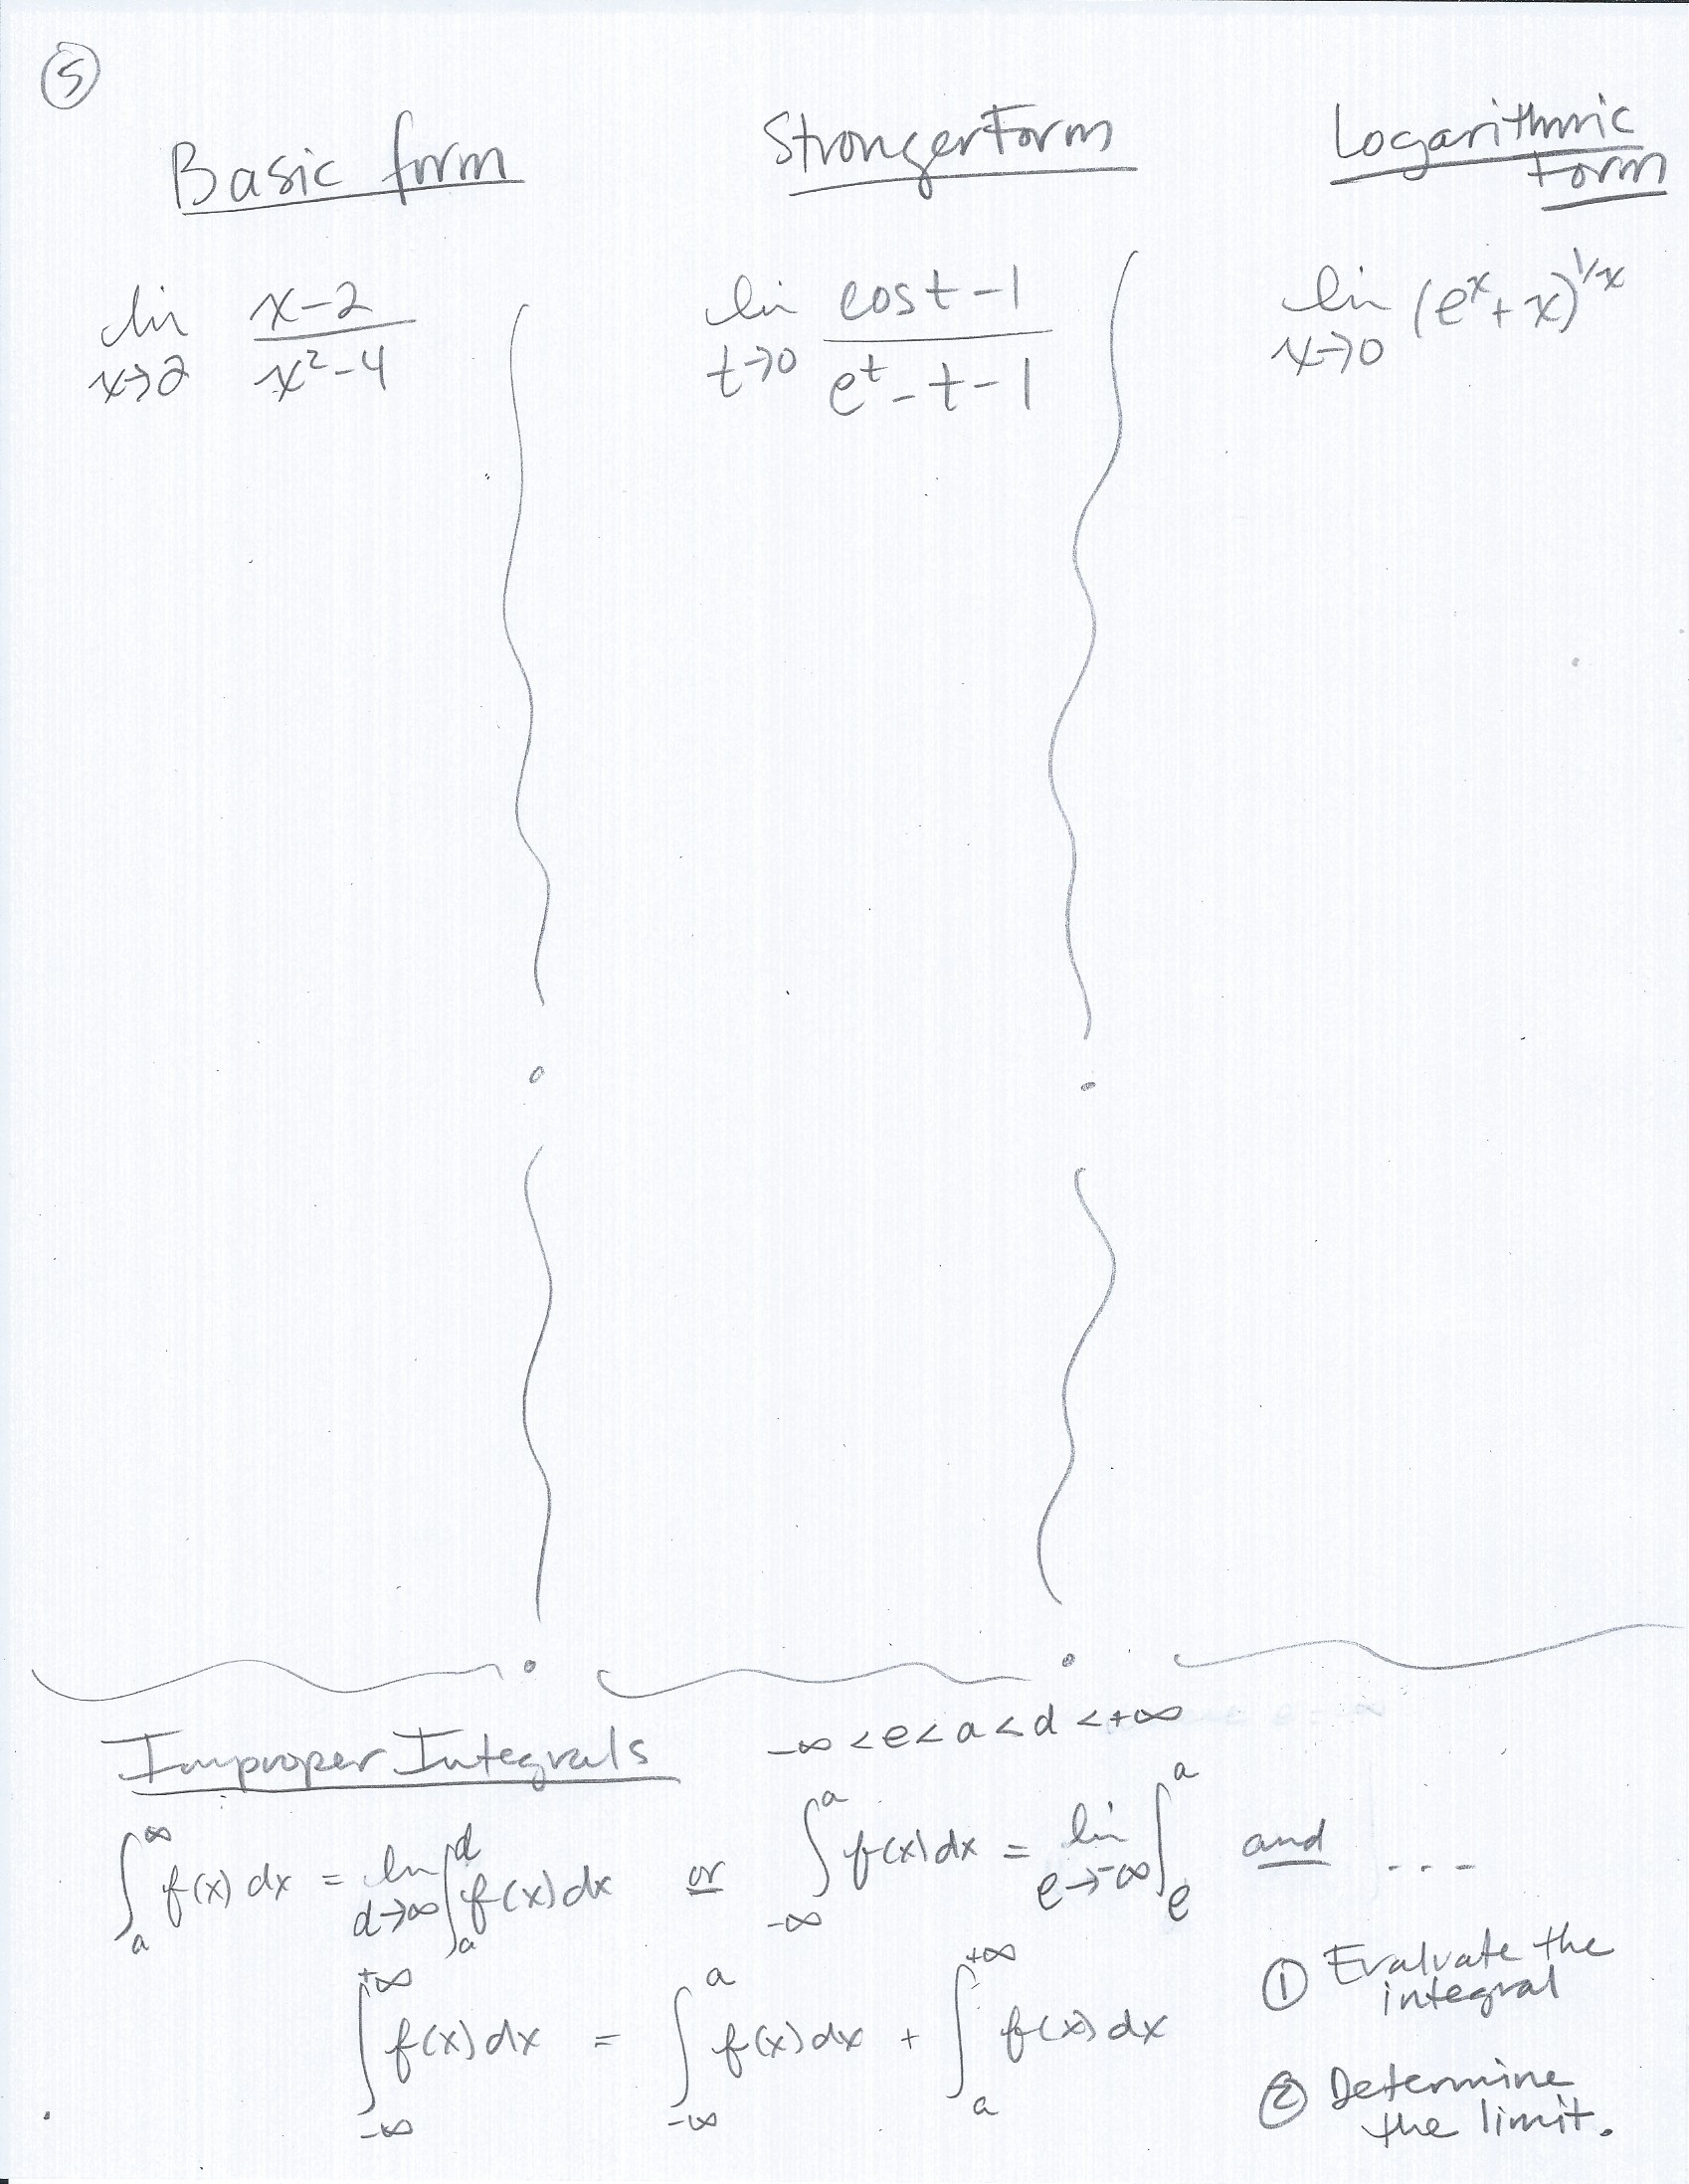 ⑤
Basic form
Stronger Form
Logarithmic
Form
lim x→2 (x-2)/(x²-4)
lim t→0 (cos t - 1)/(e^t - t - 1)
lim x→0 (e^x + x)^(1/x)
Improper Integrals
-∞ < e < a < d < +∞
∫_a^∞ f(x) dx = lim d→∞ ∫_a^d f(x) dx or ∫_-∞^a f(x) dx = lim e→-∞ ∫_e^a and ...
∫_-∞^+∞ f(x) dx = ∫_-∞^a f(x) dx + ∫_a^+∞ f(x) dx
① Evaluate the
integral
② Determine
the limit.